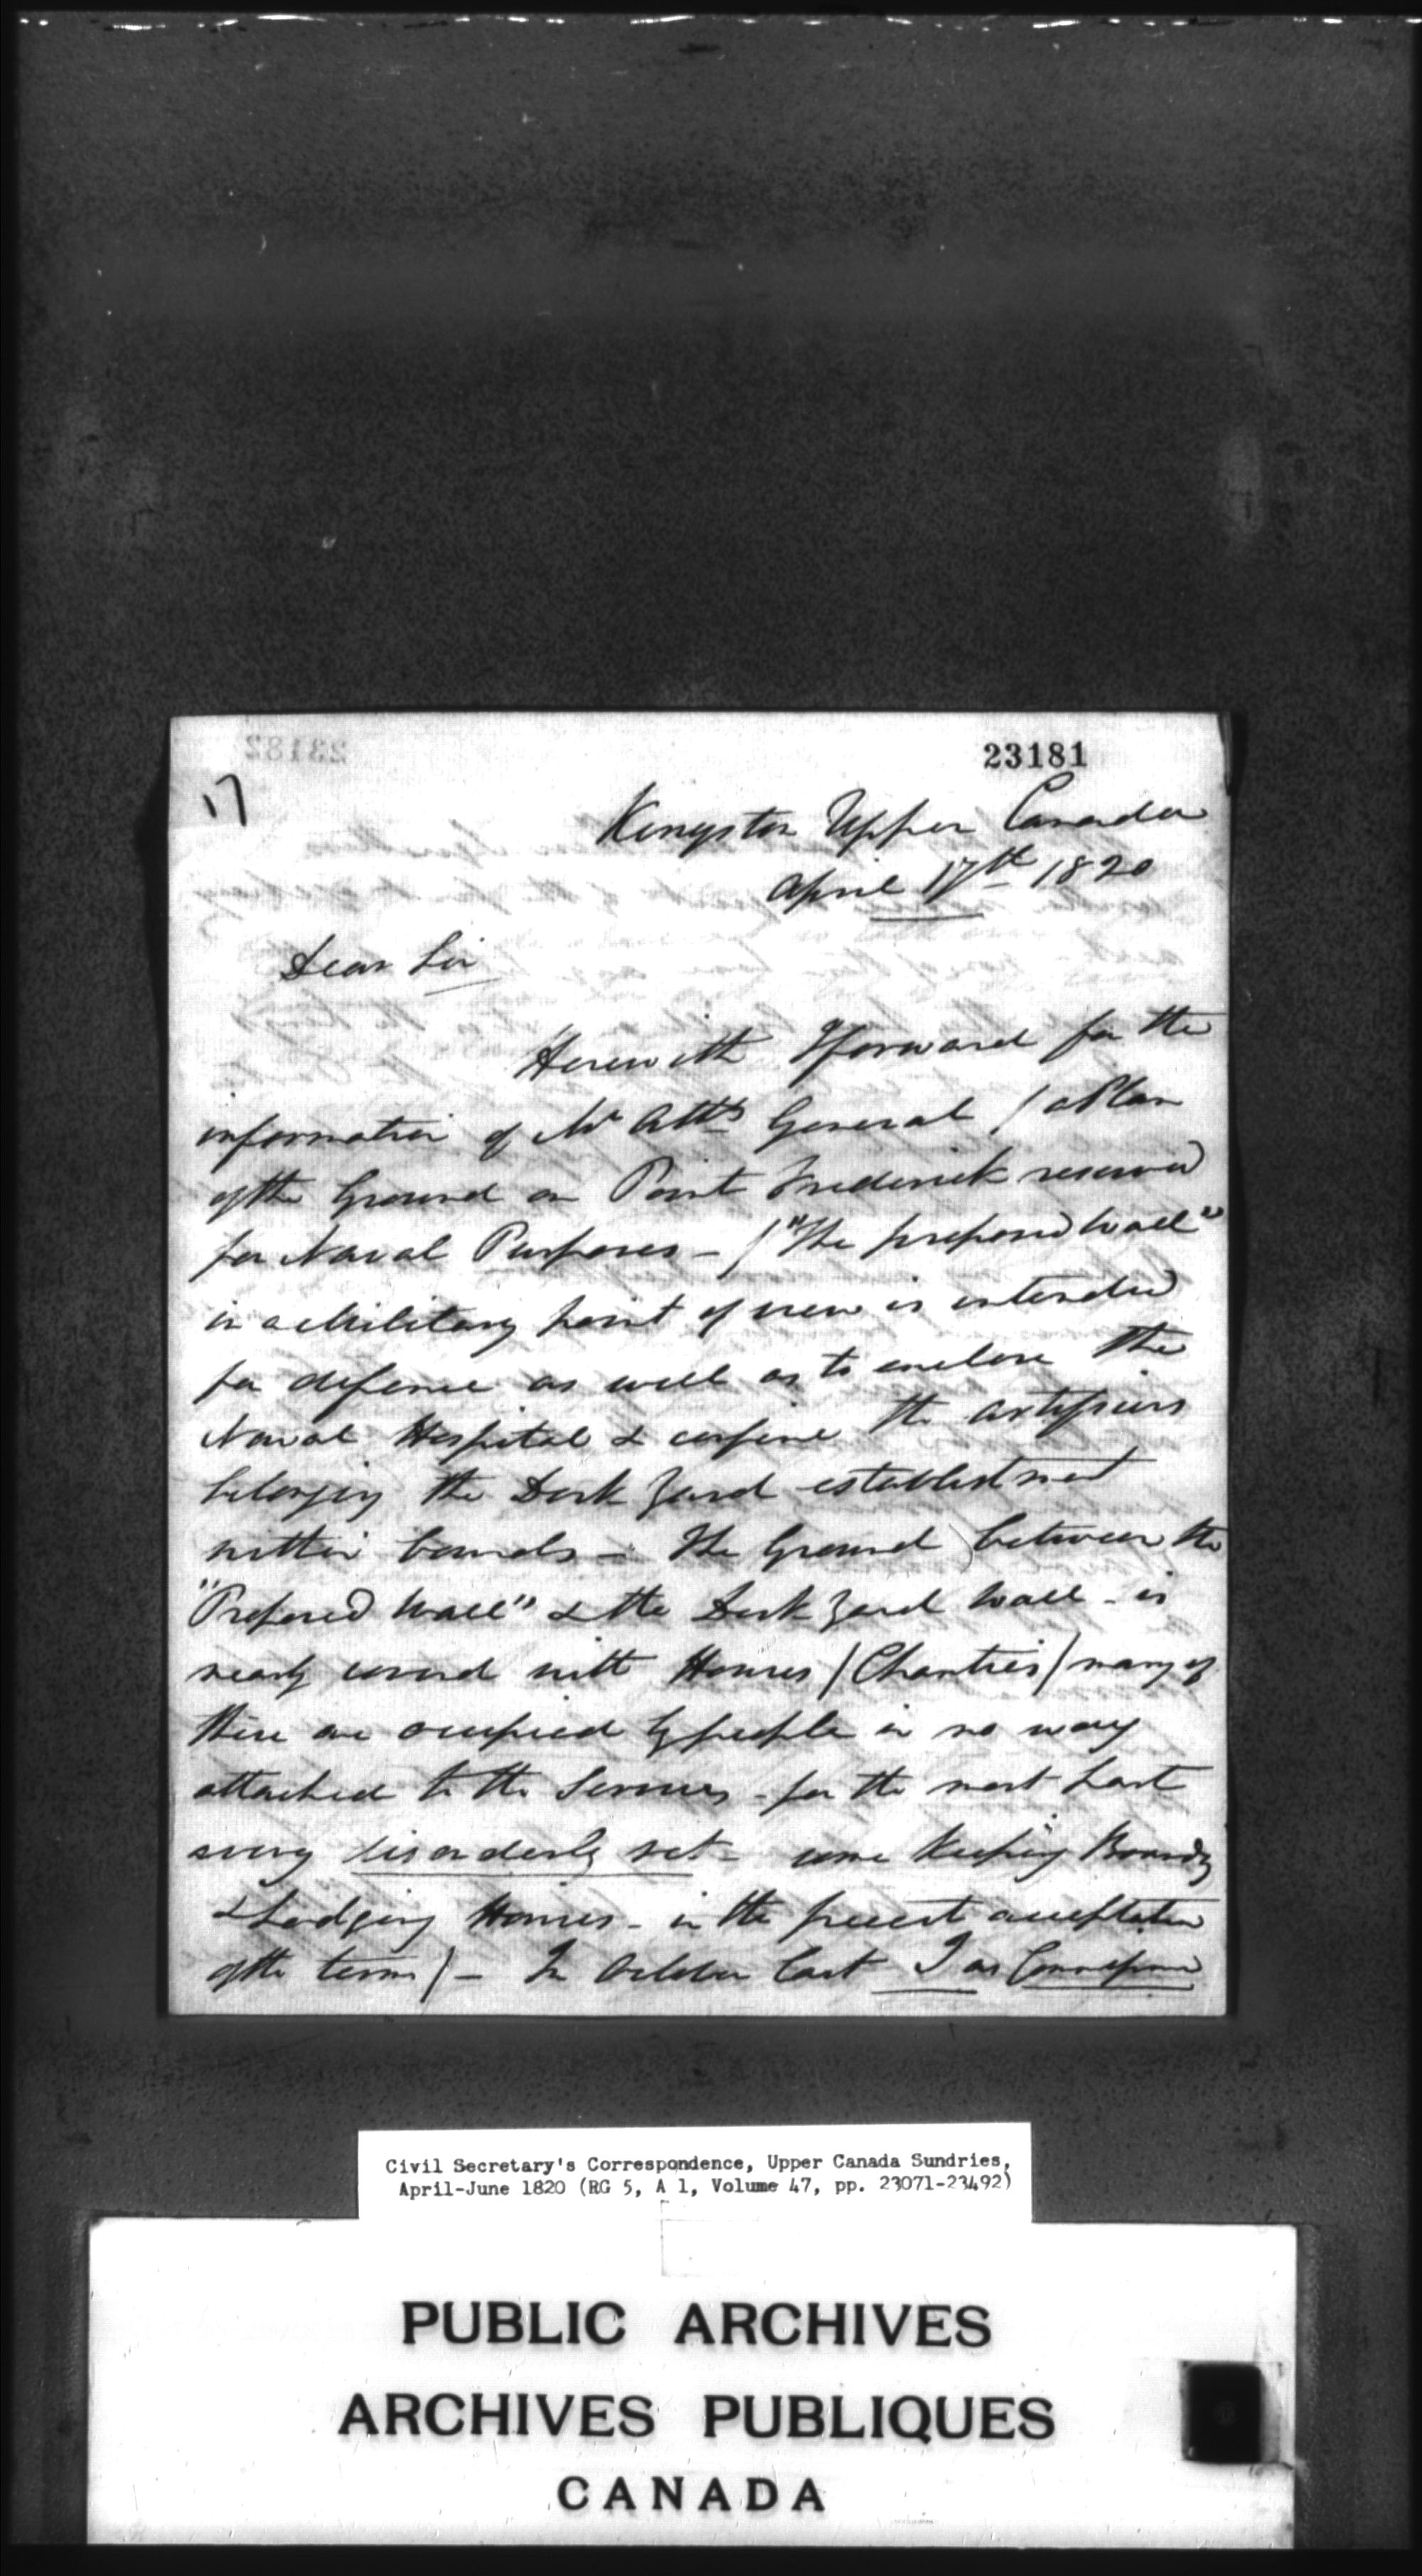 23181
17
Kingston Upper Canada
April 17th 1820
Dear Sir
Herewith I forward for the
information of Mr Atty General / a Plan
of the Ground on Point Frederick reserved
for Naval Purposes - / "The proposed Wall"
in a Military point of view is intended
for defence as well as to enclose the
Naval Hospital & confine the artificers
belonging the Dock Yard establishment
within bounds - The Ground between the
"Proposed Wall" & the Dock Yard Wall - is
nearly covered with Houses / Chanties / many of
these are occupied by people in no way
attached to the Services - for the most part
a very disorderly set - some Keeping Boarding
& Lodging Houses - in the present acceptation
of the term ) - In October last I as Commissioner
Civil Secretary's Correspondence, Upper Canada Sundries,
April-June 1820 (RG 5, A 1, Volume 47, pp. 23071-23492)
PUBLIC ARCHIVES
ARCHIVES PUBLIQUES
CANADA